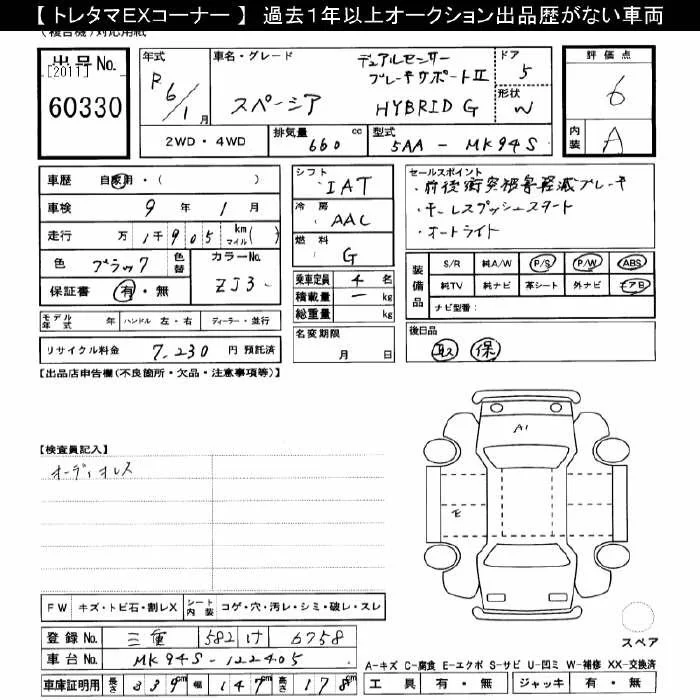 【トレタマEXコーナー】 過去1年以上オークション出品歴がない車両
出品No. [2011] 60330
年式 R6/1月
車名・グレード スペーシア デュアルセンサーブレーキサポートⅡ HYBRID G
ドア 5
形状 W
評価点 6
内装 A
2WD・4WD 排気量 660 cc 型式 5AA - MK94S
車歴 自家用・( )
車検 9年 1月
走行 万1千905 km マイル( )
色 ブラック 色替 カラーNo. ZJ3
保証書 有・無
モデル年式 年 ハンドル 左・右 ディーラー・並行
リサイクル料金 7,230 円 預託済
シフト IAT
冷房 AAC
燃料 G
乗車定員 4 名
積載量 ー kg
総重量 kg
名変期限 月 日
セールスポイント
・前後衝突被害軽減ブレーキ
・キーレスプッシュスタート
・オートライト
装備品 S/R 純A/W P/S P/W ABS
純TV 純ナビ 革シート 外ナビ エアB
ナビ型番:
後日品
取 保
【出品店申告欄(不良箇所・欠品・注意事項等)】
【検査員記入】
オーディオレス
A1
E
FW キズ・トビ石・割レX シート内装 コゲ・穴・汚レ・シミ・破レ・スレ
登録No. 三重 582 け 6758
車台No. MK94S-122405
車庫証明用 長さ 339cm 幅 147cm 高さ 178cm
スペア
A-キズ C-腐食 E-エクボ S-サビ U-凹ミ W-補修 XX-交換済
工具 有・無 ジャッキ 有・無